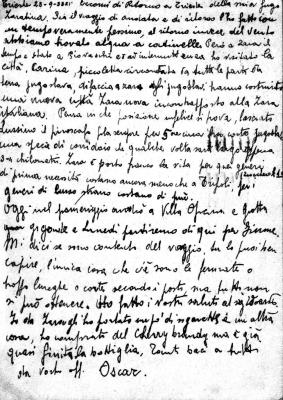 Trieste 28-9-1931 Eccomi di ritorno a Trieste dalla mia fuga
Zaratina. Sia il viaggio di andata e di ritorno l'ho fatto con
un tempo veramente pessimo, al ritorno invece del vento
abbiamo trovato acqua a catinelle. Però a Zara il
tempo è stato a piovaschi ed ad intermittenza ho visitato la
città, carina, piccoletta circondata da tutte le parti da
terra jugoslava, di faccia a Zara gli jugoslavi hanno costruito
una nuova città Zara nova in contrapposto alla Zara
italiana. Pensa in che posizione infelice si trova, lasciato
Lussino il piroscafo fila sempre per 5 ore circa fra costa jugoslava
una specie di corridoio che qualche volta sarà largo appena
chilometri. Zara è porto franco la vita per quei generi
di prima necessità costano ancora meno che a Tripoli, per i
generi di lusso costano di più.
Oggi nel pomeriggio andrò a Villa Opicina e grotta
gigante e lunedì partiremo di qui per Fiume.
Mi dici se sono contento del viaggio, tu lo puoi ben
capire, l'unica cosa che c'è sono le fermate o
troppo lunghe o corte secondo i posti, ma tutti non
si può ottenere. Ho fatto i vostri saluti al
Io da Zara gli ho portato un po' di sigarette e un'altra
cosa, ho comprato del Cherry brandy ma è già
quasi finita la bottiglia, Tanti baci a tutti
da vostro aff. Oscar.